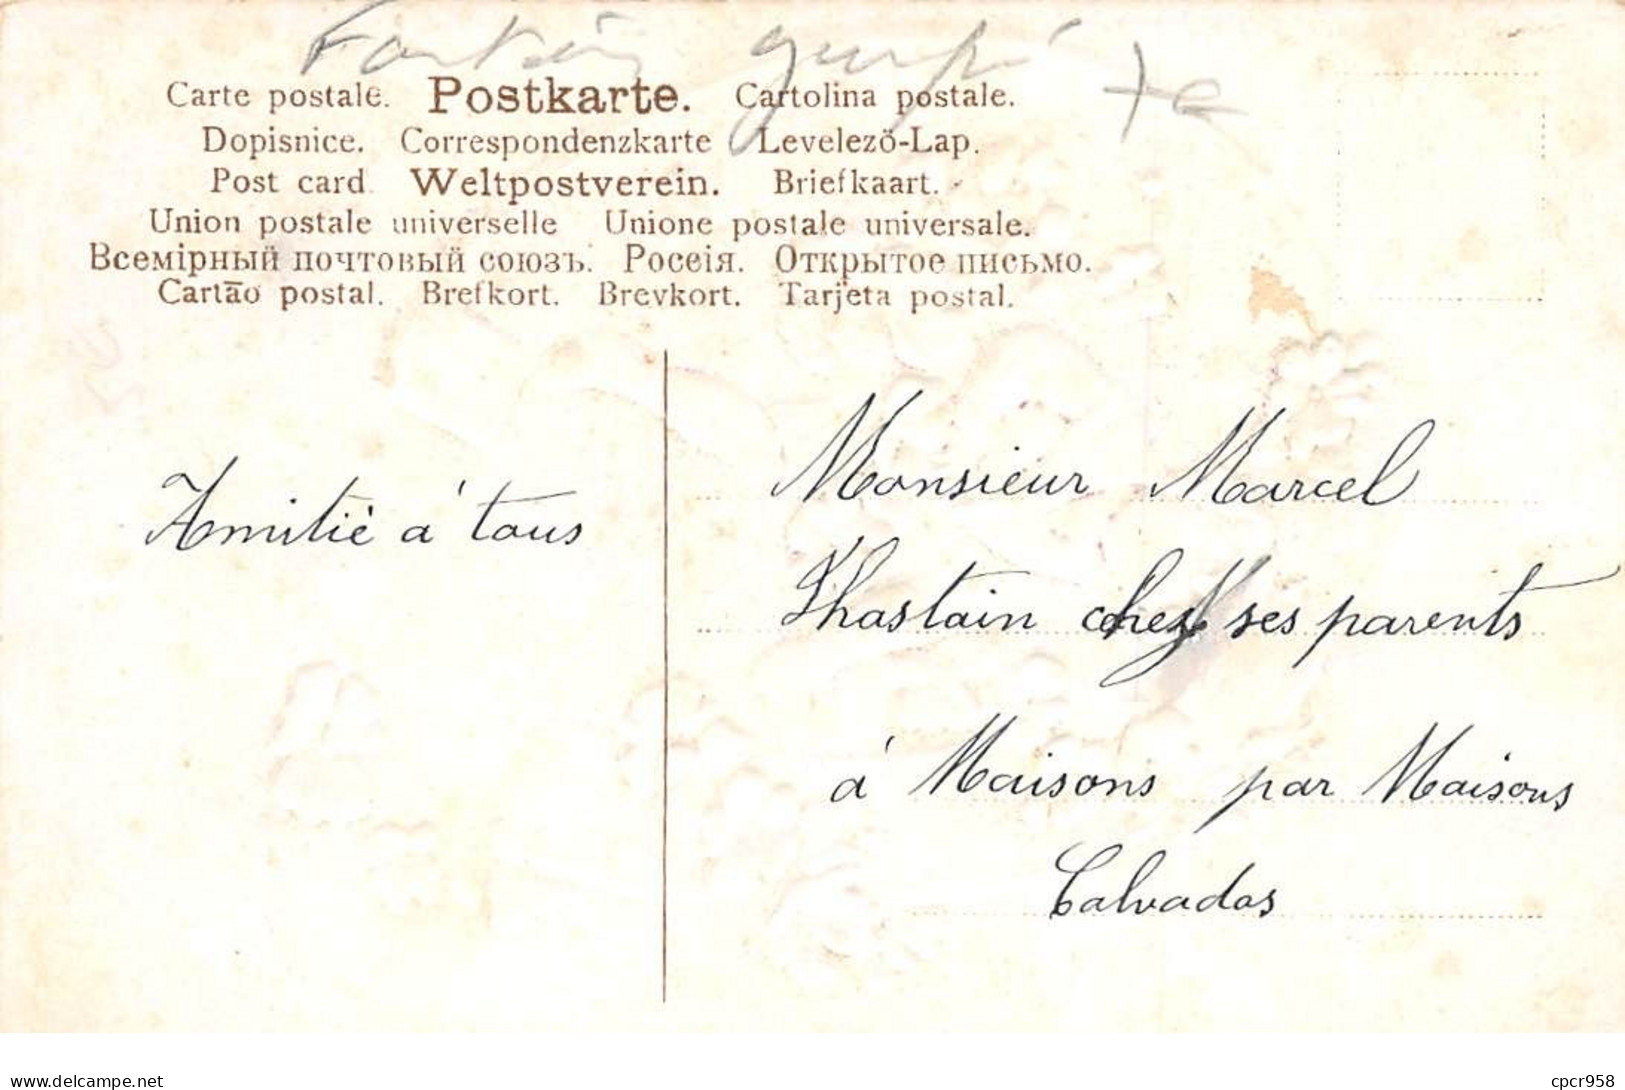 Carte postale. Postkarte. Cartolina postale.
Dopisnice. Correspondenzkarte Levelezö-Lap.
Post card Weltpostverein. Briefkaart.
Union postale universelle Unione postale universale.
Всемірный почтовый союзъ. Росеія. Открытое письмо.
Cartāo postal. Brefkort. Brevkort. Tarjeta postal.
Amitié à tous
Monsieur Marcel
Thastain chez ses parents
à Maisons par Maisons
Calvados
delcampe.net
cpcr958